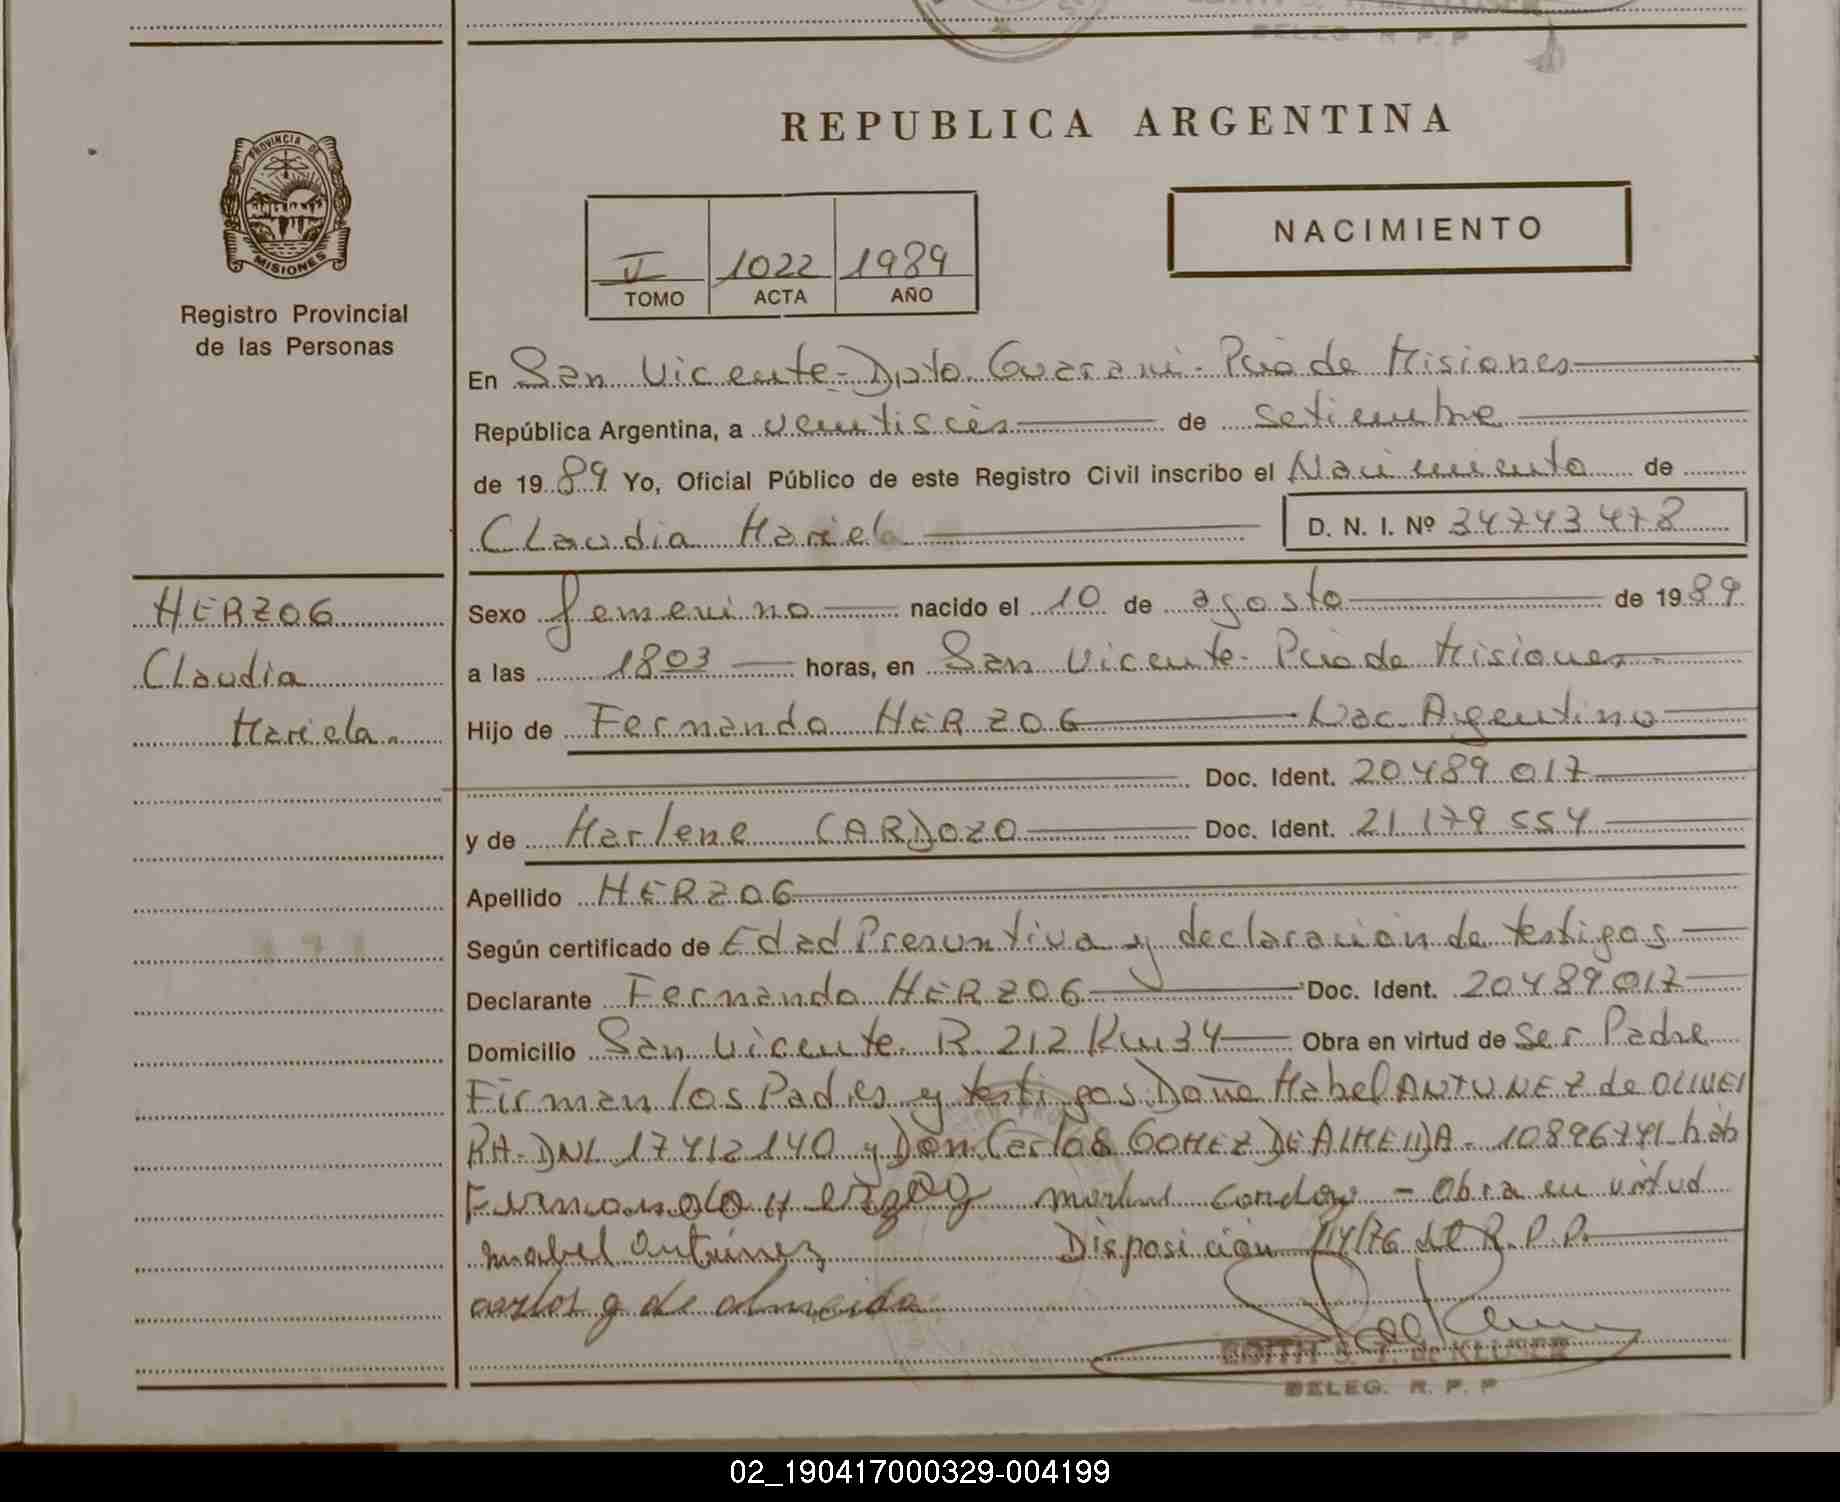 DELEG. R. P. P
PROVINCIA DE
MISIONES
Registro Provincial
de las Personas
REPUBLICA ARGENTINA
1022 1989
TOMO ACTA AÑO
NACIMIENTO
En San Vicente - Dpto. Guarani - Pcia de Misiones
República Argentina, a veintiseis de setiembre
de 1989 Yo, Oficial Público de este Registro Civil inscribo el Nacimiento de
Claudia Mariela D. N. I. Nº 34743478
HERZOG
Claudia
Mariela.
Sexo femenino nacido el 10 de agosto de 1989
a las 1803 horas, en San Vicente - Pcia de Misiones
Hijo de Fernando HERZOG Nac. Argentino
Doc. Ident. 20489017
y de Marlene CARDOZO Doc. Ident. 21179554
Apellido HERZOG
Según certificado de Edad Presuntiva y declaración de testigos
Declarante Fernando HERZOG Doc. Ident. 20489017
Domicilio San Vicente R 212 Km 34 Obra en virtud de Ser Padre
Firman los Padres y testigos Doña Mabel ANTUNEZ de OLIVEI
RA - DNI 17412140 y Don Carlos GOMEZ DE ALMEIDA - 10896741 hab
Fernando Herzog - Obra en virtud
mabel antunez Disposición /76 del R.P.P.
carlos g de almeida
EDITH S. T. de KLUSER
DELEG. R. P. P
02_190417000329-004199